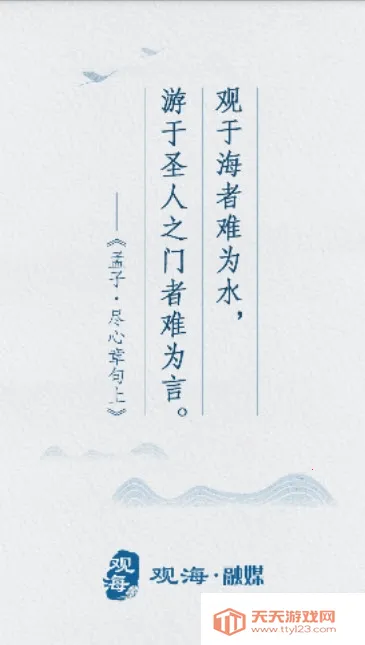 观于海者难为水，
游于圣人之门者难为言。
——《孟子·尽心章句上》
观海
观海·融媒
天天游戏网
www.ttyl23.com